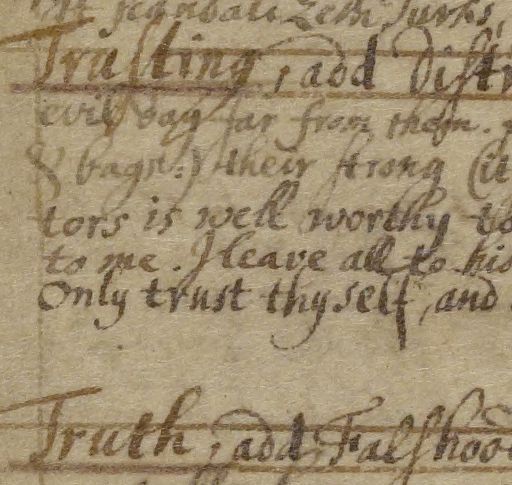 scandalizeth Turks,
Trusting, add Distr
evil day far from them.
& bags:) their strong (it
tors is well worthy to
to me. I leave all to his
Only trust thy self, and
Truth, add Falshood